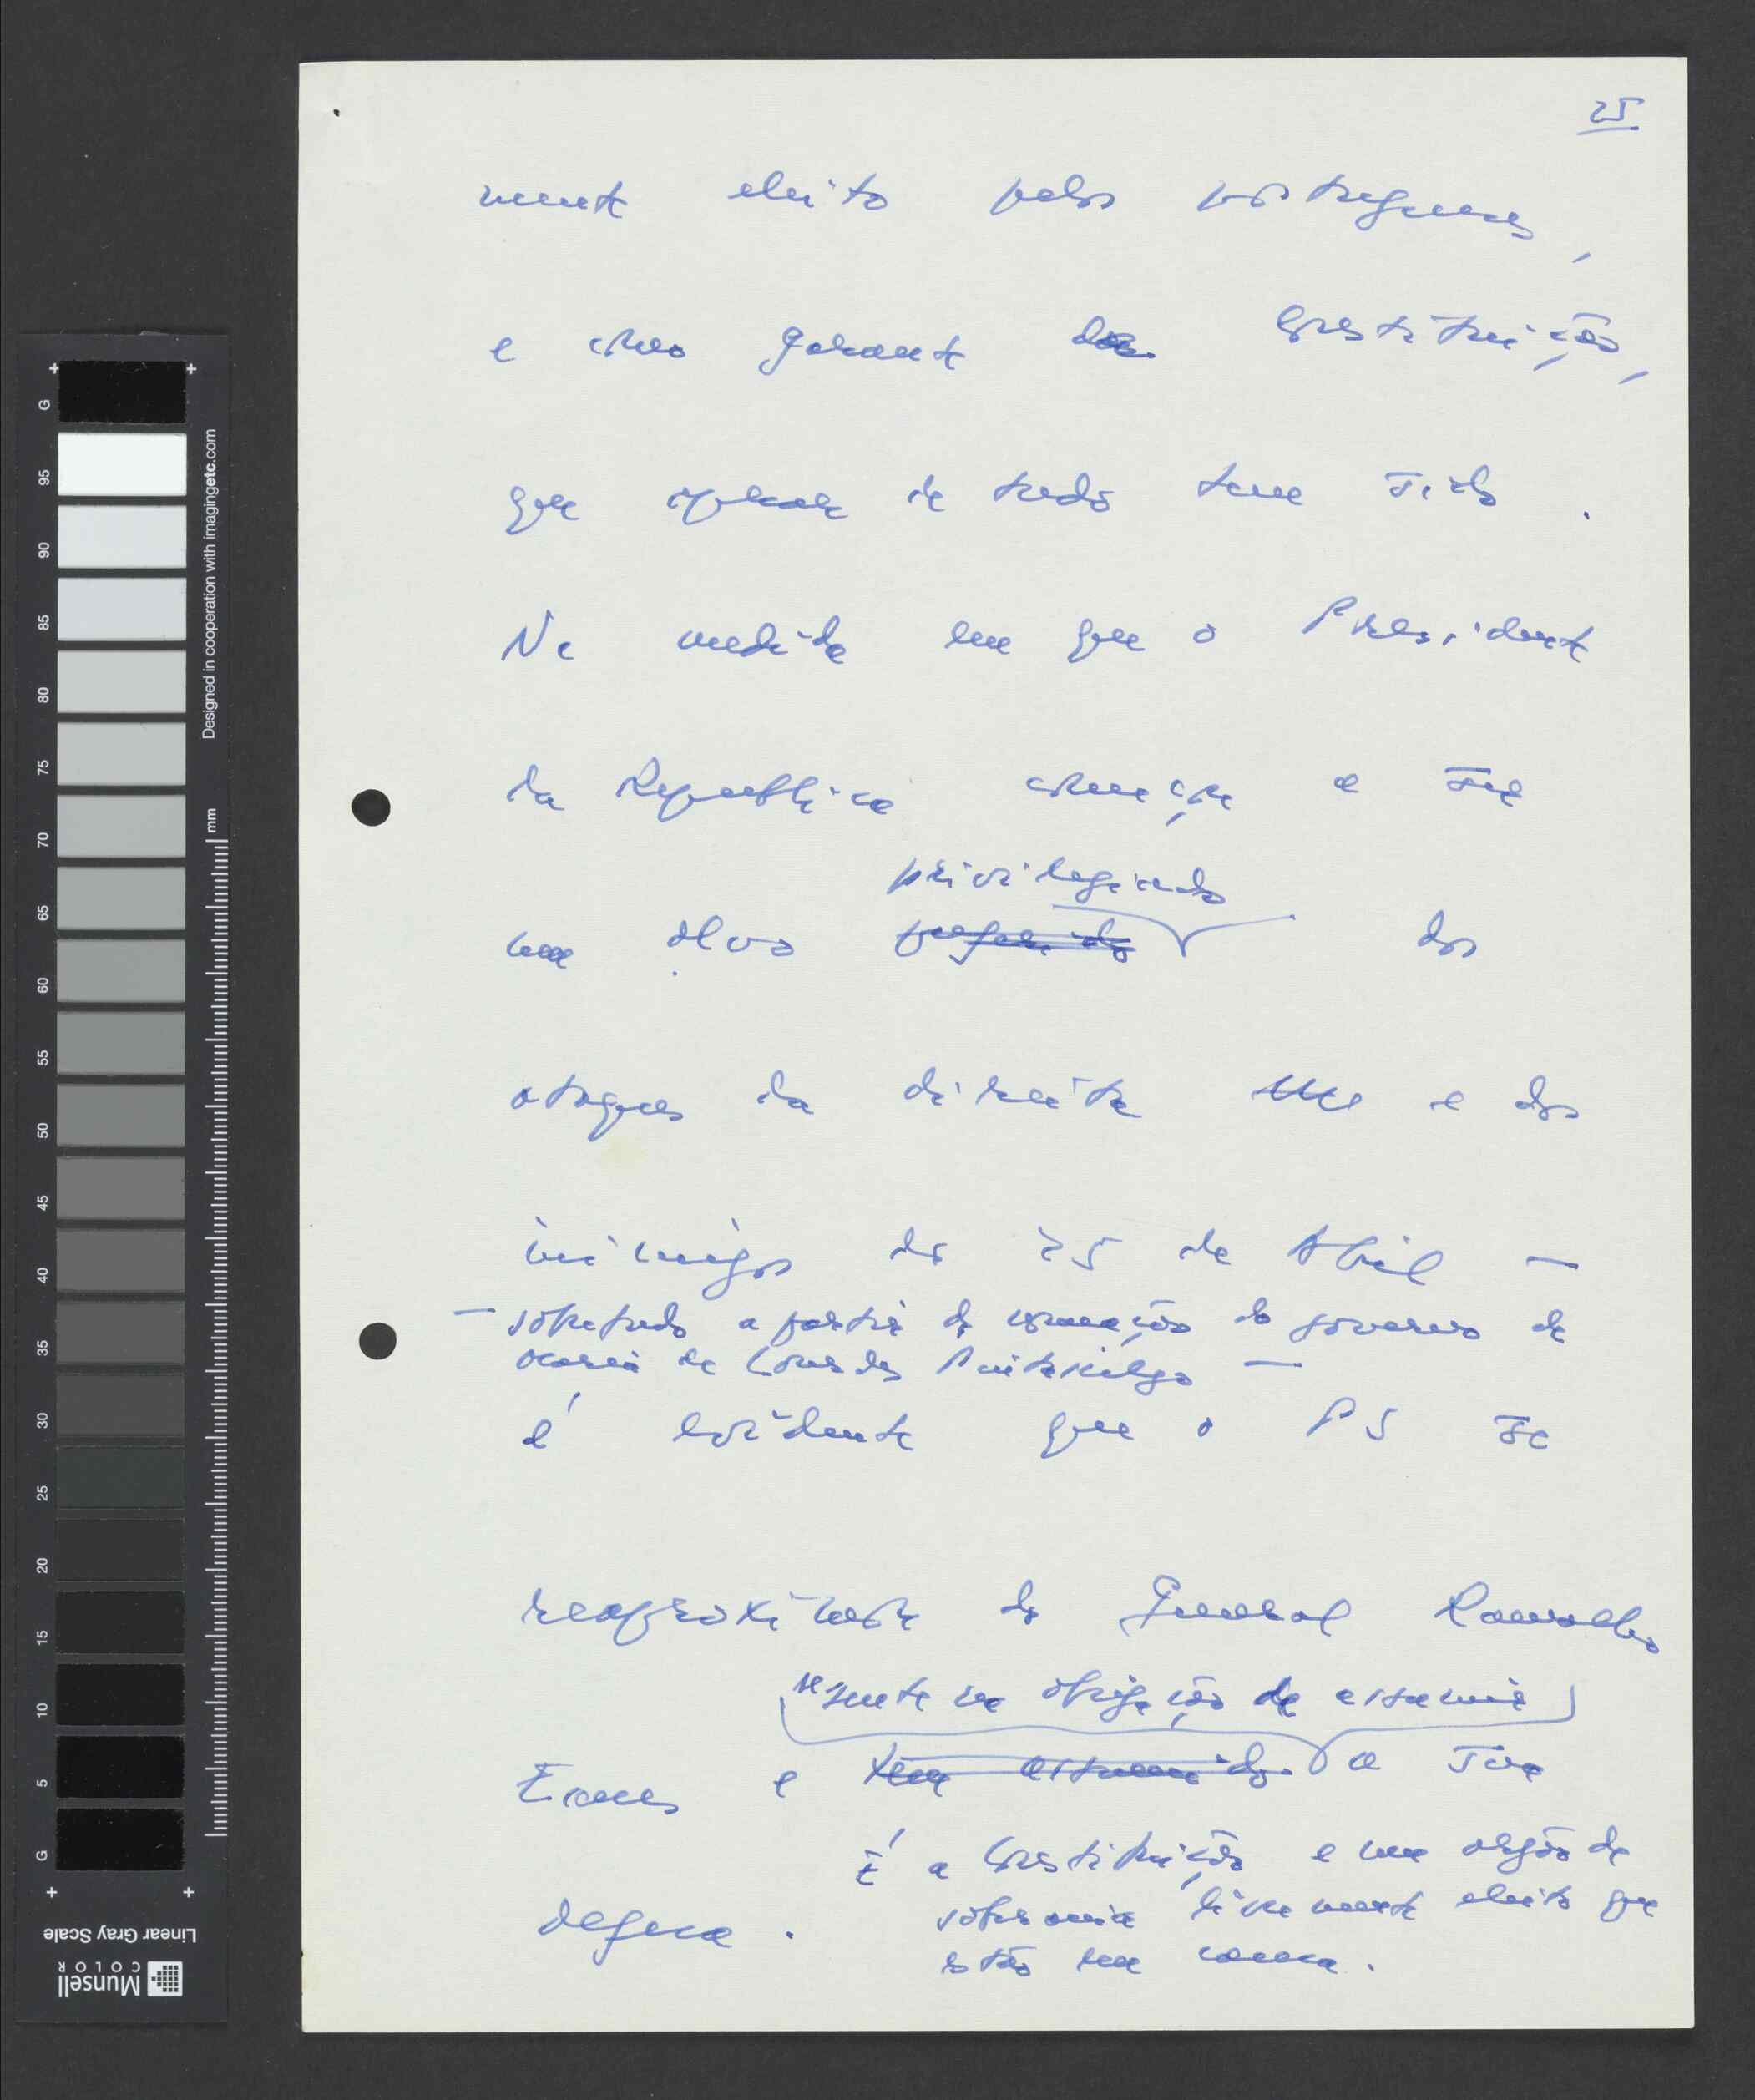 25
mente eleito pelos portugueses,
e como garante da Constituição,
que apesar de tudo tem sido.
Na medida em que o Presidente
da Republica começou a ser
privilegiado
um alvo preferido dos
ataques da direita e dos
inimigos do 25 de Abril —
— sobretudo a partir da formação do governo de
Maria de Lourdes Pintasilgo —
é evidente que o PS se
reaproximou do General Ramalho
se sente na obrigação de assumir
Eanes e tem assumido a sua
É a Constituição e um orgão de
defesa. soberania livremente eleito que
estão em causa.
Designed in cooperation with imagingetc.com
mm
G 95 90 85 80 75 70 65 60 55 50 45 40 35 30 25 20 15 10 5 G
Linear Gray Scale
Munsell
COLOR